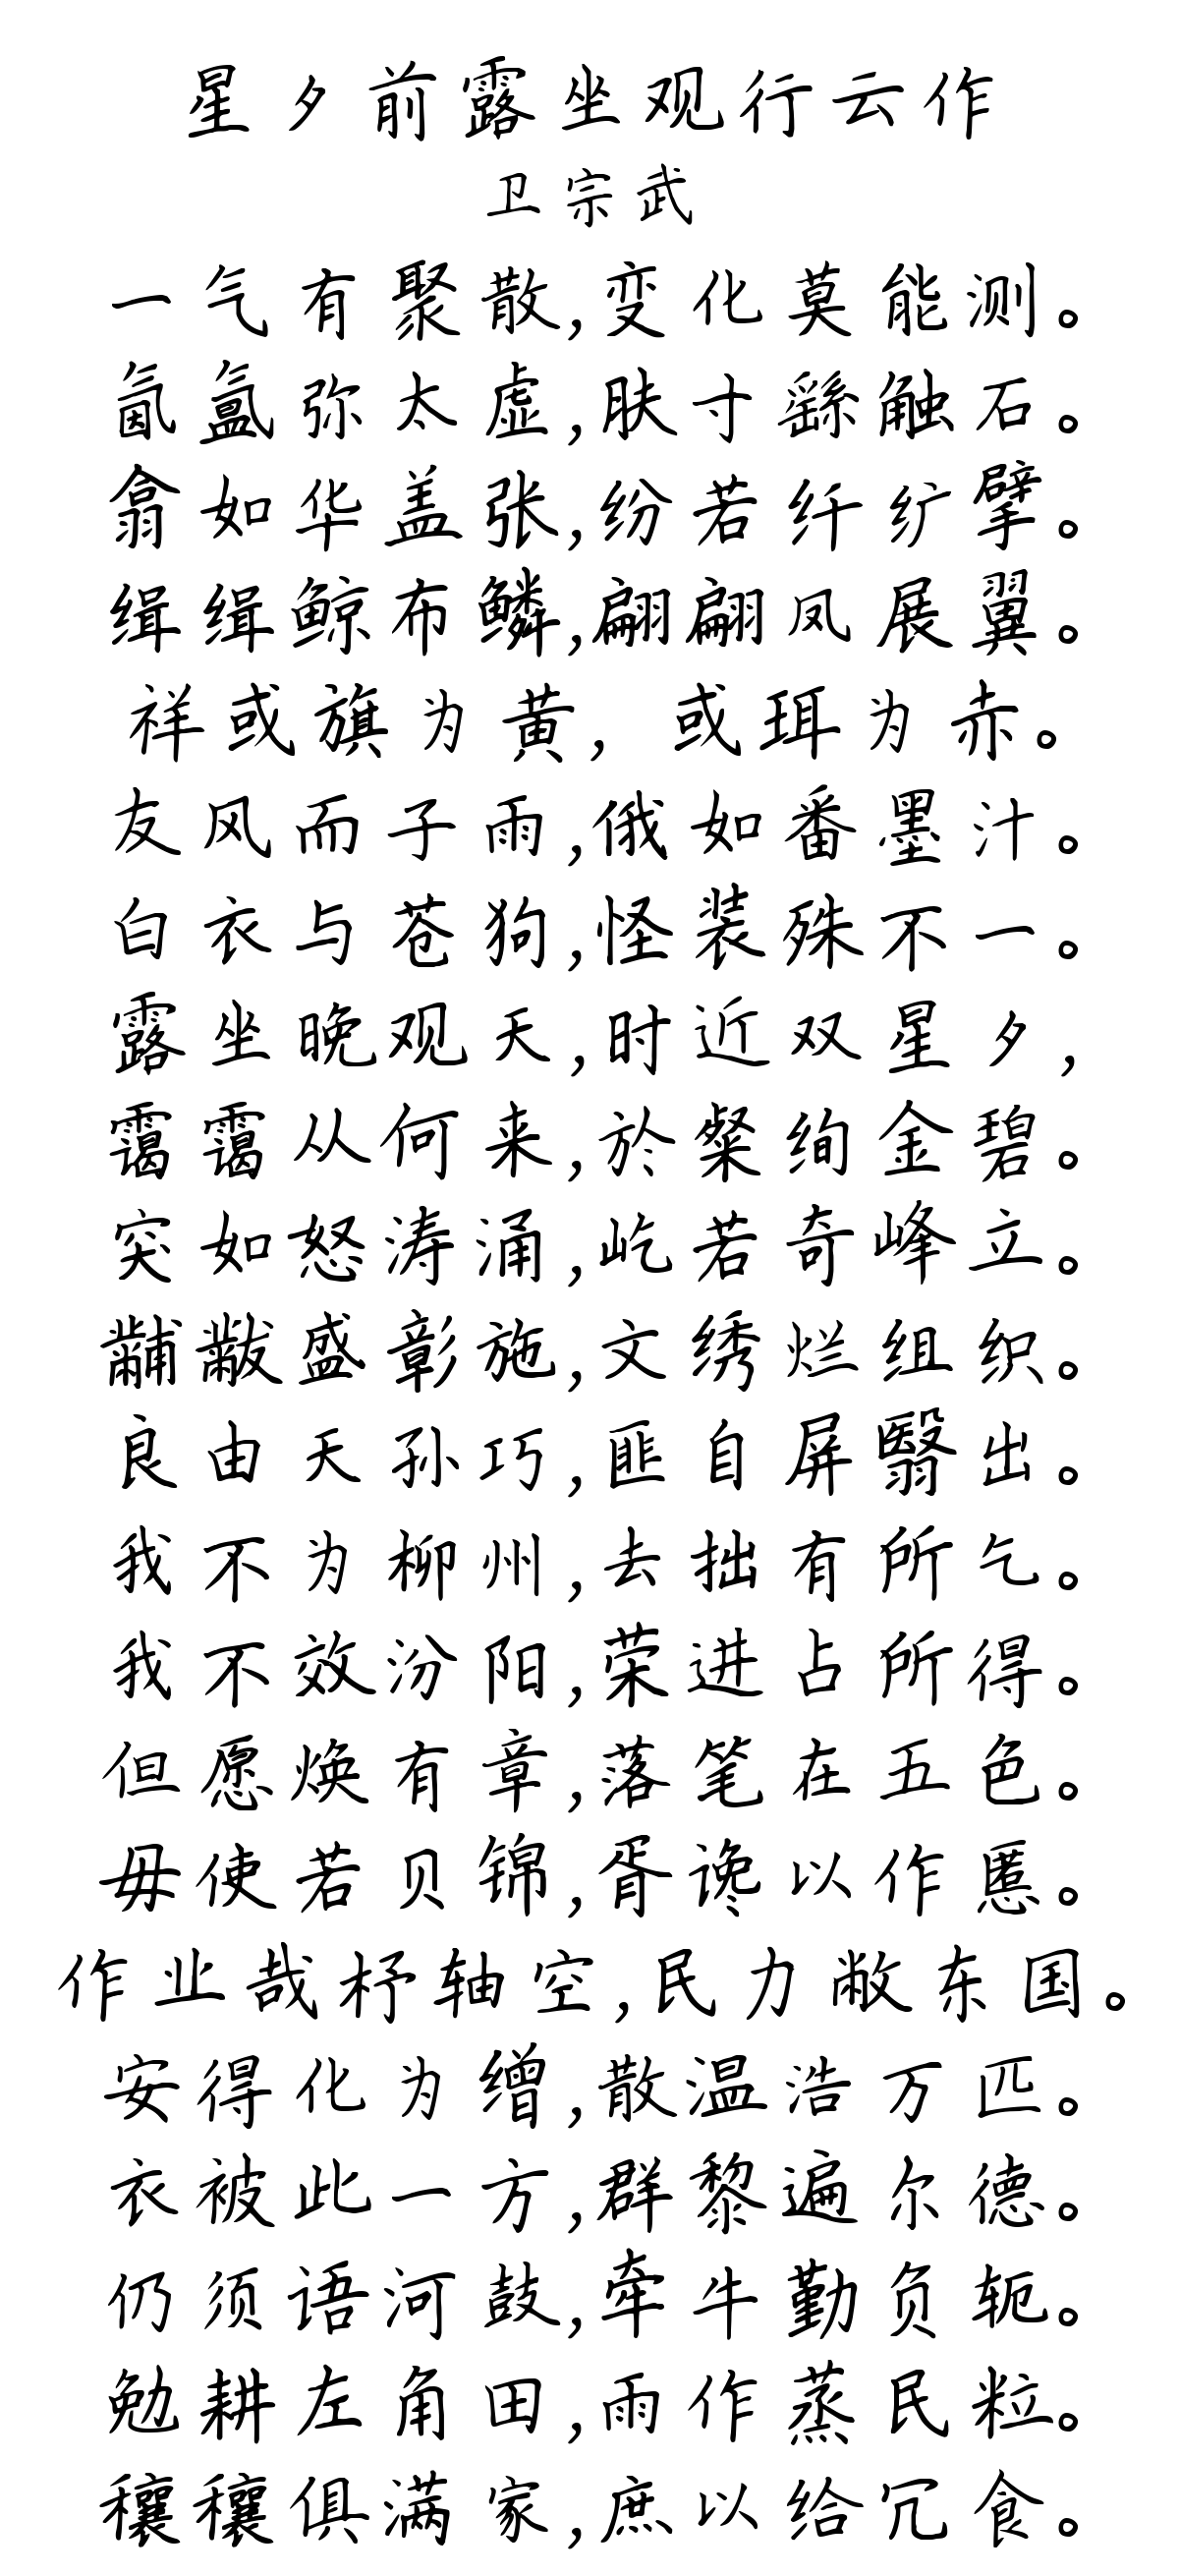 星夕前露坐观行云作
卫宗武
一气有聚散,变化莫能测。
氤氲弥太虚,肤寸繇触石。
翕如华盖张,纷若纤纩擘。
缉缉鲸布鳞,翩翩凤展翼。
祥或旗为黄,或珥为赤。
友风而子雨,俄如番墨汁。
白衣与苍狗,怪装殊不一。
露坐晚观天,时近双星夕,
霭霭从何来,於粲绚金碧。
突如怒涛涌,屹若奇峰立。
黼黻盛彰施,文绣烂组织。
良由天孙巧,匪自屏翳出。
我不为柳州,去拙有所乞。
我不效汾阳,荣进占所得。
但愿焕有章,落笔在五色。
毋使若贝锦,胥谗以作慝。
作业哉杼轴空,民力敝东国。
安得化为缯,散温浩万匹。
衣被此一方,群黎遍尔德。
仍须语河鼓,牵牛勤负轭。
勉耕左角田,雨作蒸民粒。
穰穰俱满家,庶以给冗食。